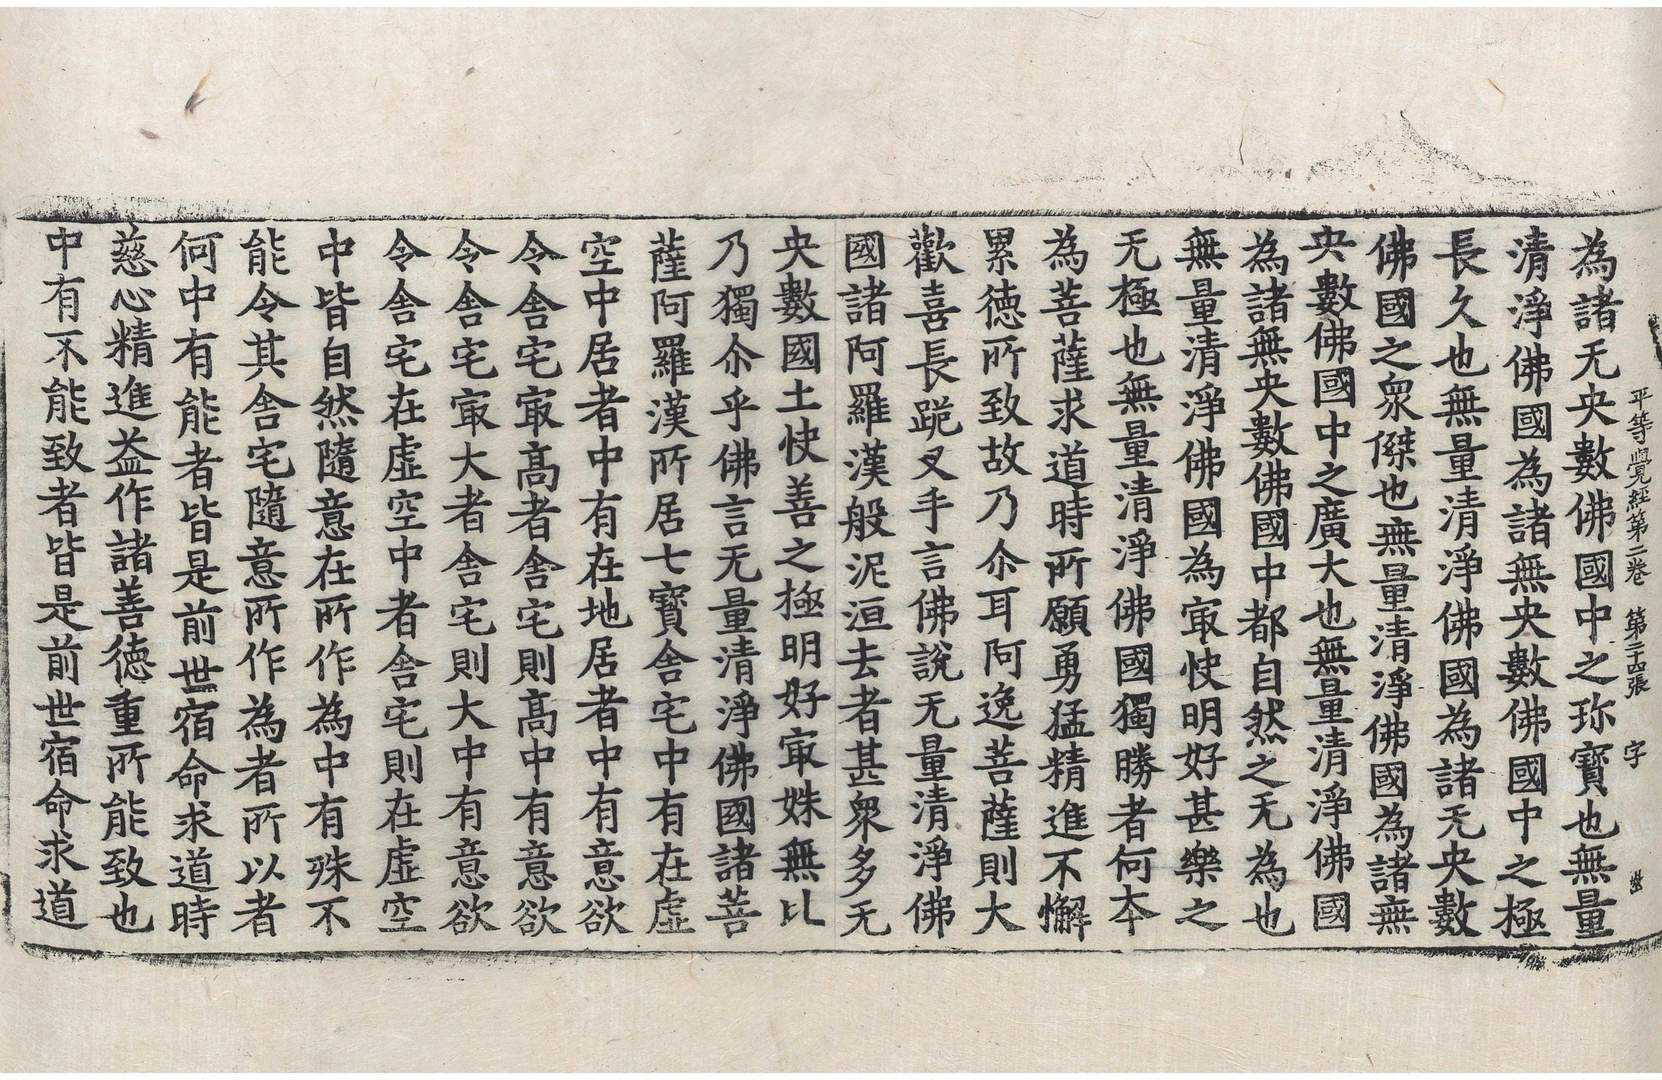 平等覺經第二卷 第二十四張 字
為諸无央數佛國中之珎寶也無量
清淨佛國為諸無央數佛國中之極
長久也無量清淨佛國為諸无央數
佛國之衆傑也無量清淨佛國為諸無
央數佛國中之廣大也無量清淨佛國
為諸無央數佛國中都自然之无為也
無量清淨佛國為㝡快明好甚樂之
无極也無量清淨佛國獨勝者何本
為菩薩求道時所願勇猛精進不懈
累德所致故乃尒耳阿逸菩薩則大
歡喜長跪叉手言佛說无量清淨佛
國諸阿羅漢般泥洹去者甚衆多无
央數國土快善之極明好㝡姝無比
乃獨尒乎佛言无量清淨佛國諸菩
薩阿羅漢所居七寶舍宅中有在虛
空中居者中有在地居者中有意欲
令舍宅㝡高者舍宅則高中有意欲
令舍宅㝡大者舍宅則大中有意欲
令舍宅在虛空中者舍宅則在虛空
中皆自然隨意在所作為中有殊不
能令其舍宅隨意所作為者所以者
何中有能者皆是前世宿命求道時
慈心精進益作諸善德重所能致也
中有不能致者皆是前世宿命求道